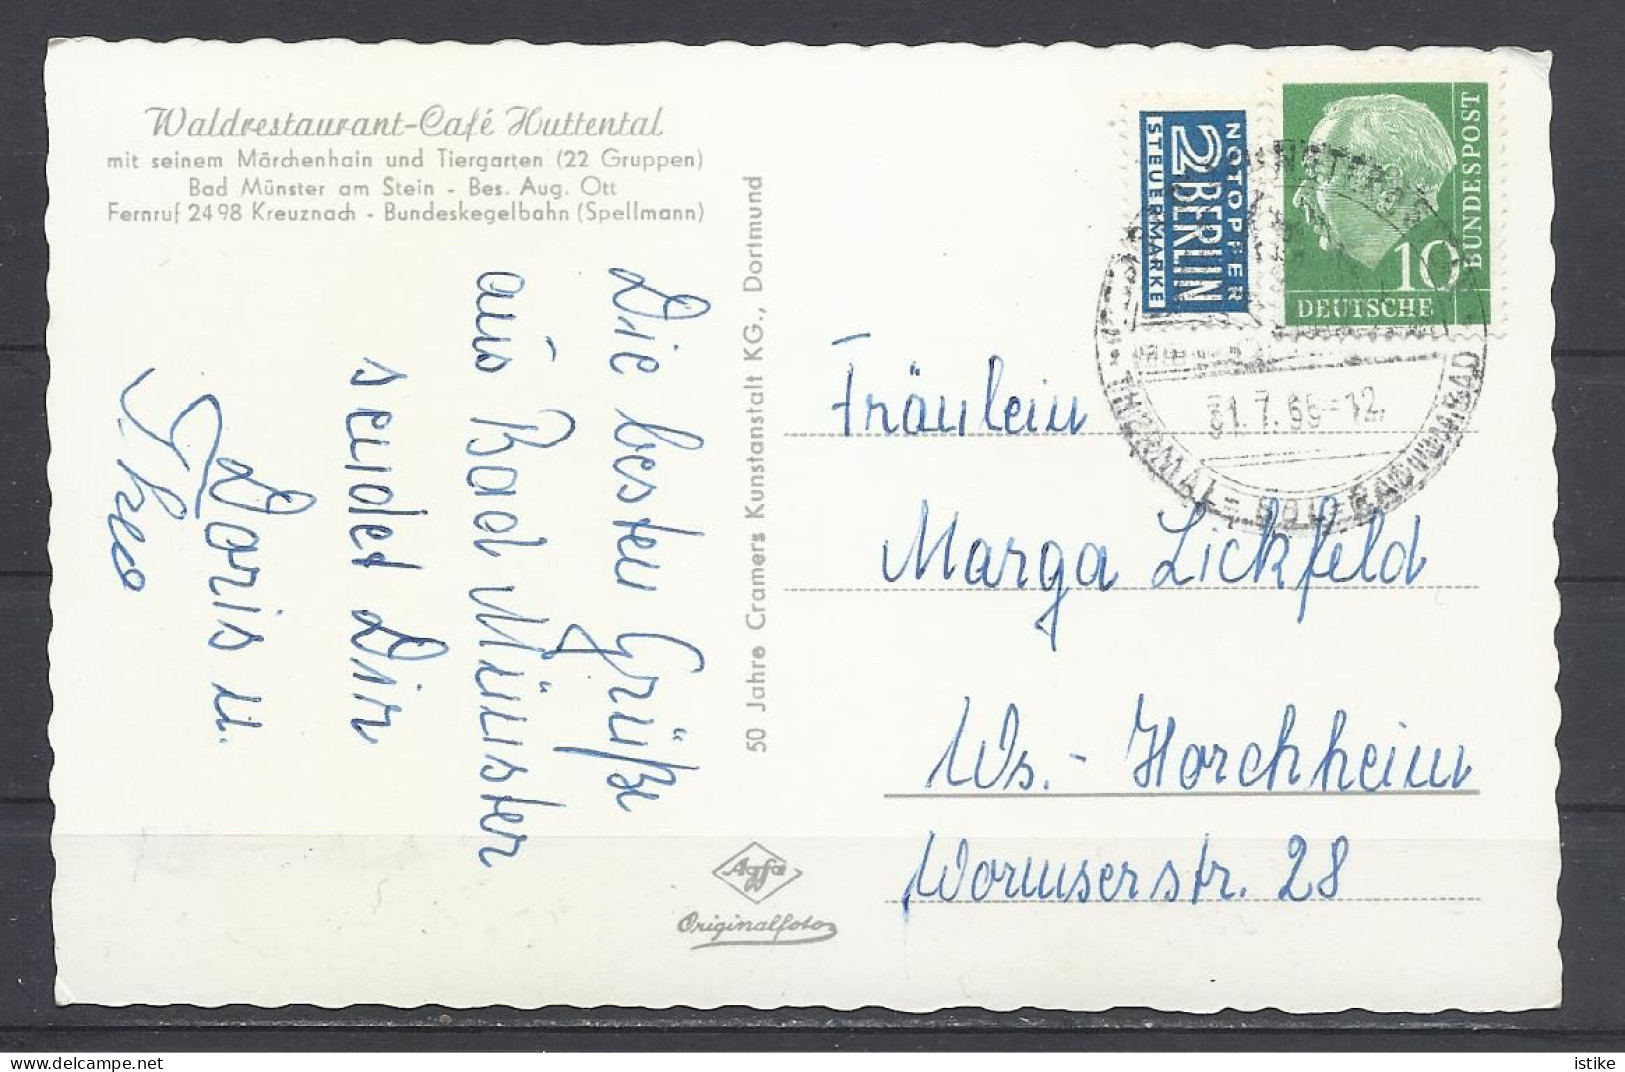 Waldrestaurant-Café Huttental
mit seinem Märchenhain und Tiergarten (22 Gruppen)
Bad Münster am Stein - Bes. Aug. Ott
Fernruf 2498 Kreuznach - Bundeskegelbahn (Spellmann)
Die besten Grüße
aus Bad Münster
sendet Dir
Doris u.
Theo
50 Jahre Cramers Kunstanstalt KG., Dortmund
Agfa
Originalfoto
NOTOPFER
2 BERLIN
STEUERMARKE
10
DEUTSCHE
BUNDESPOST
THERMAL= SOL=
Fräulein
Marga Lickfeld
Ws.- Horchheim
Wormserstr. 28
istike